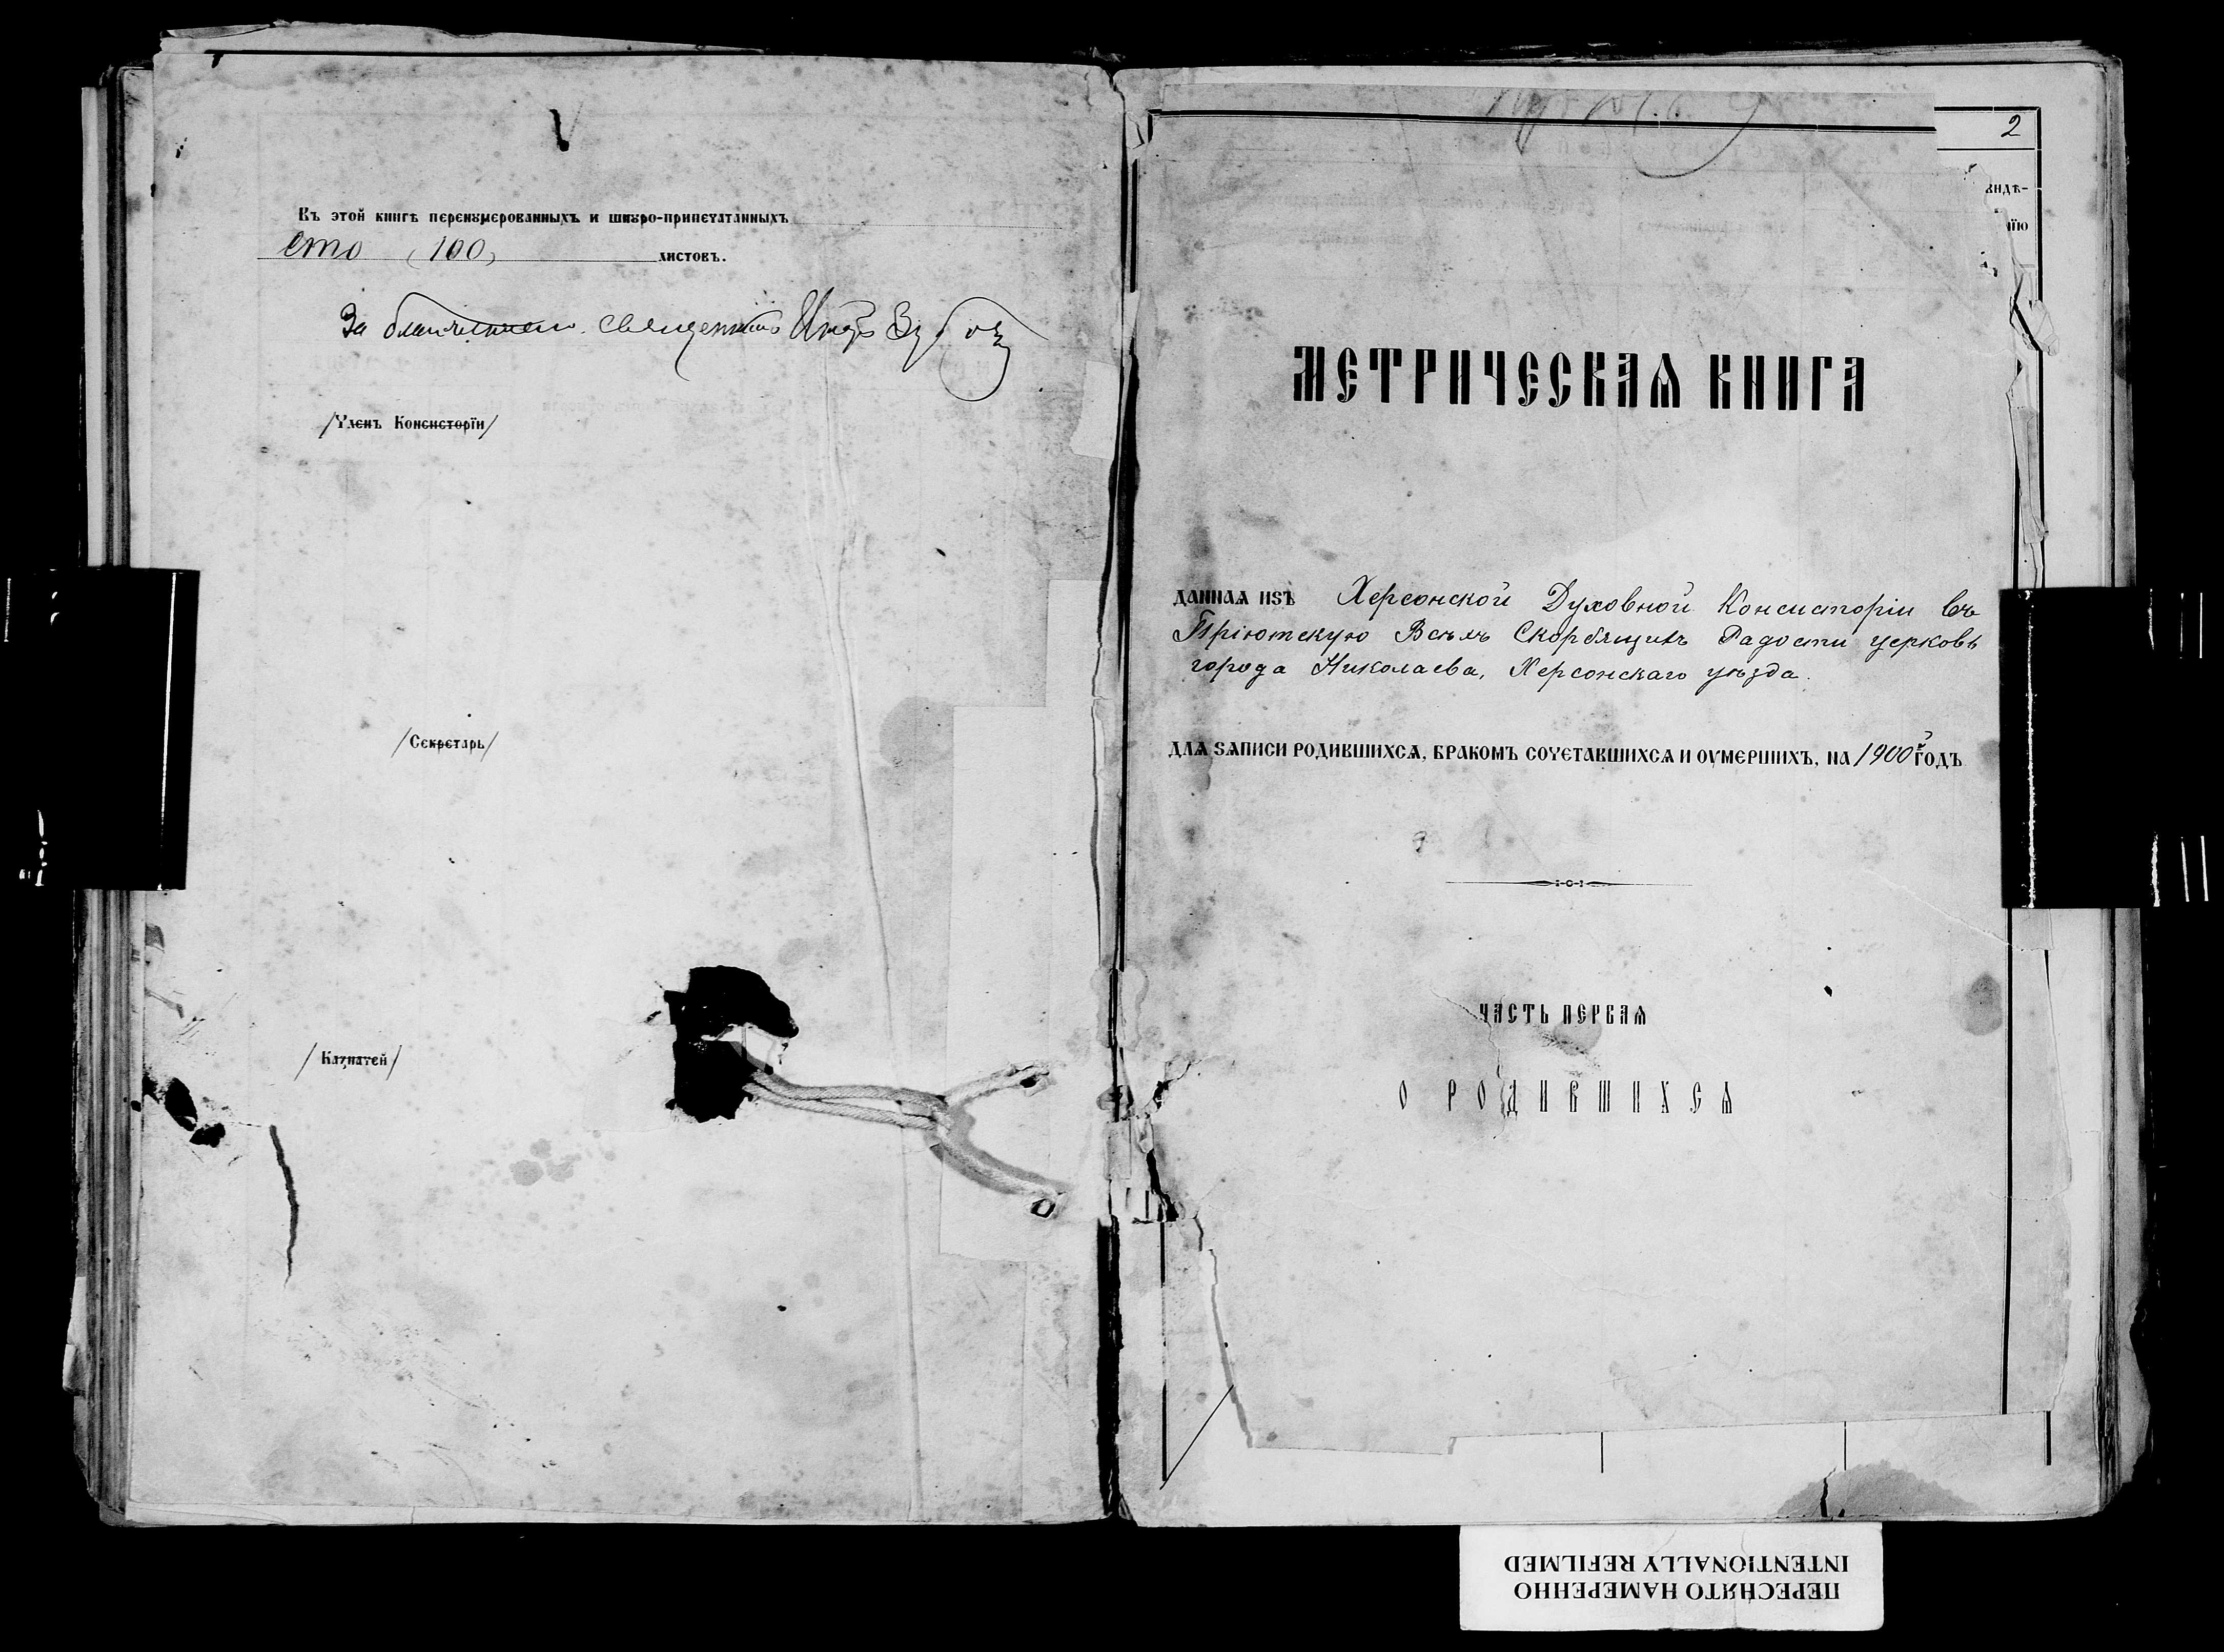 Въ этой книгѣ перенумерованныхъ и шнуро-припечатанныхъ
сто (100) листовъ.
За благочиннаго священникъ Зубовъ
/Членъ Консисторіи/
/Секретарь/
/Казначей/
2
видѣ-
нію
МЕТРИЧЕСКАѦ КНИГА
ДАННАѦ ИЗЪ Херсонской Духовной Консисторіи въ
Пріютскую Всѣхъ Скорбящихъ Радости церковь
города Николаева, Херсонскаго уѣзда.
ДЛѦ ЗАПИСИ РОДИВШИХСѦ, БРАКОМЪ СОЧЕТАВШИХСѦ И ОУМЕРШИХЪ, НА 1900й ГОДЪ
ЧАСТЬ ПЕРВАѦ
О РОДИВШИХСѦ
ПЕРЕСНЯТО НАМЕРЕННО
INTENTIONALLY REFILMED